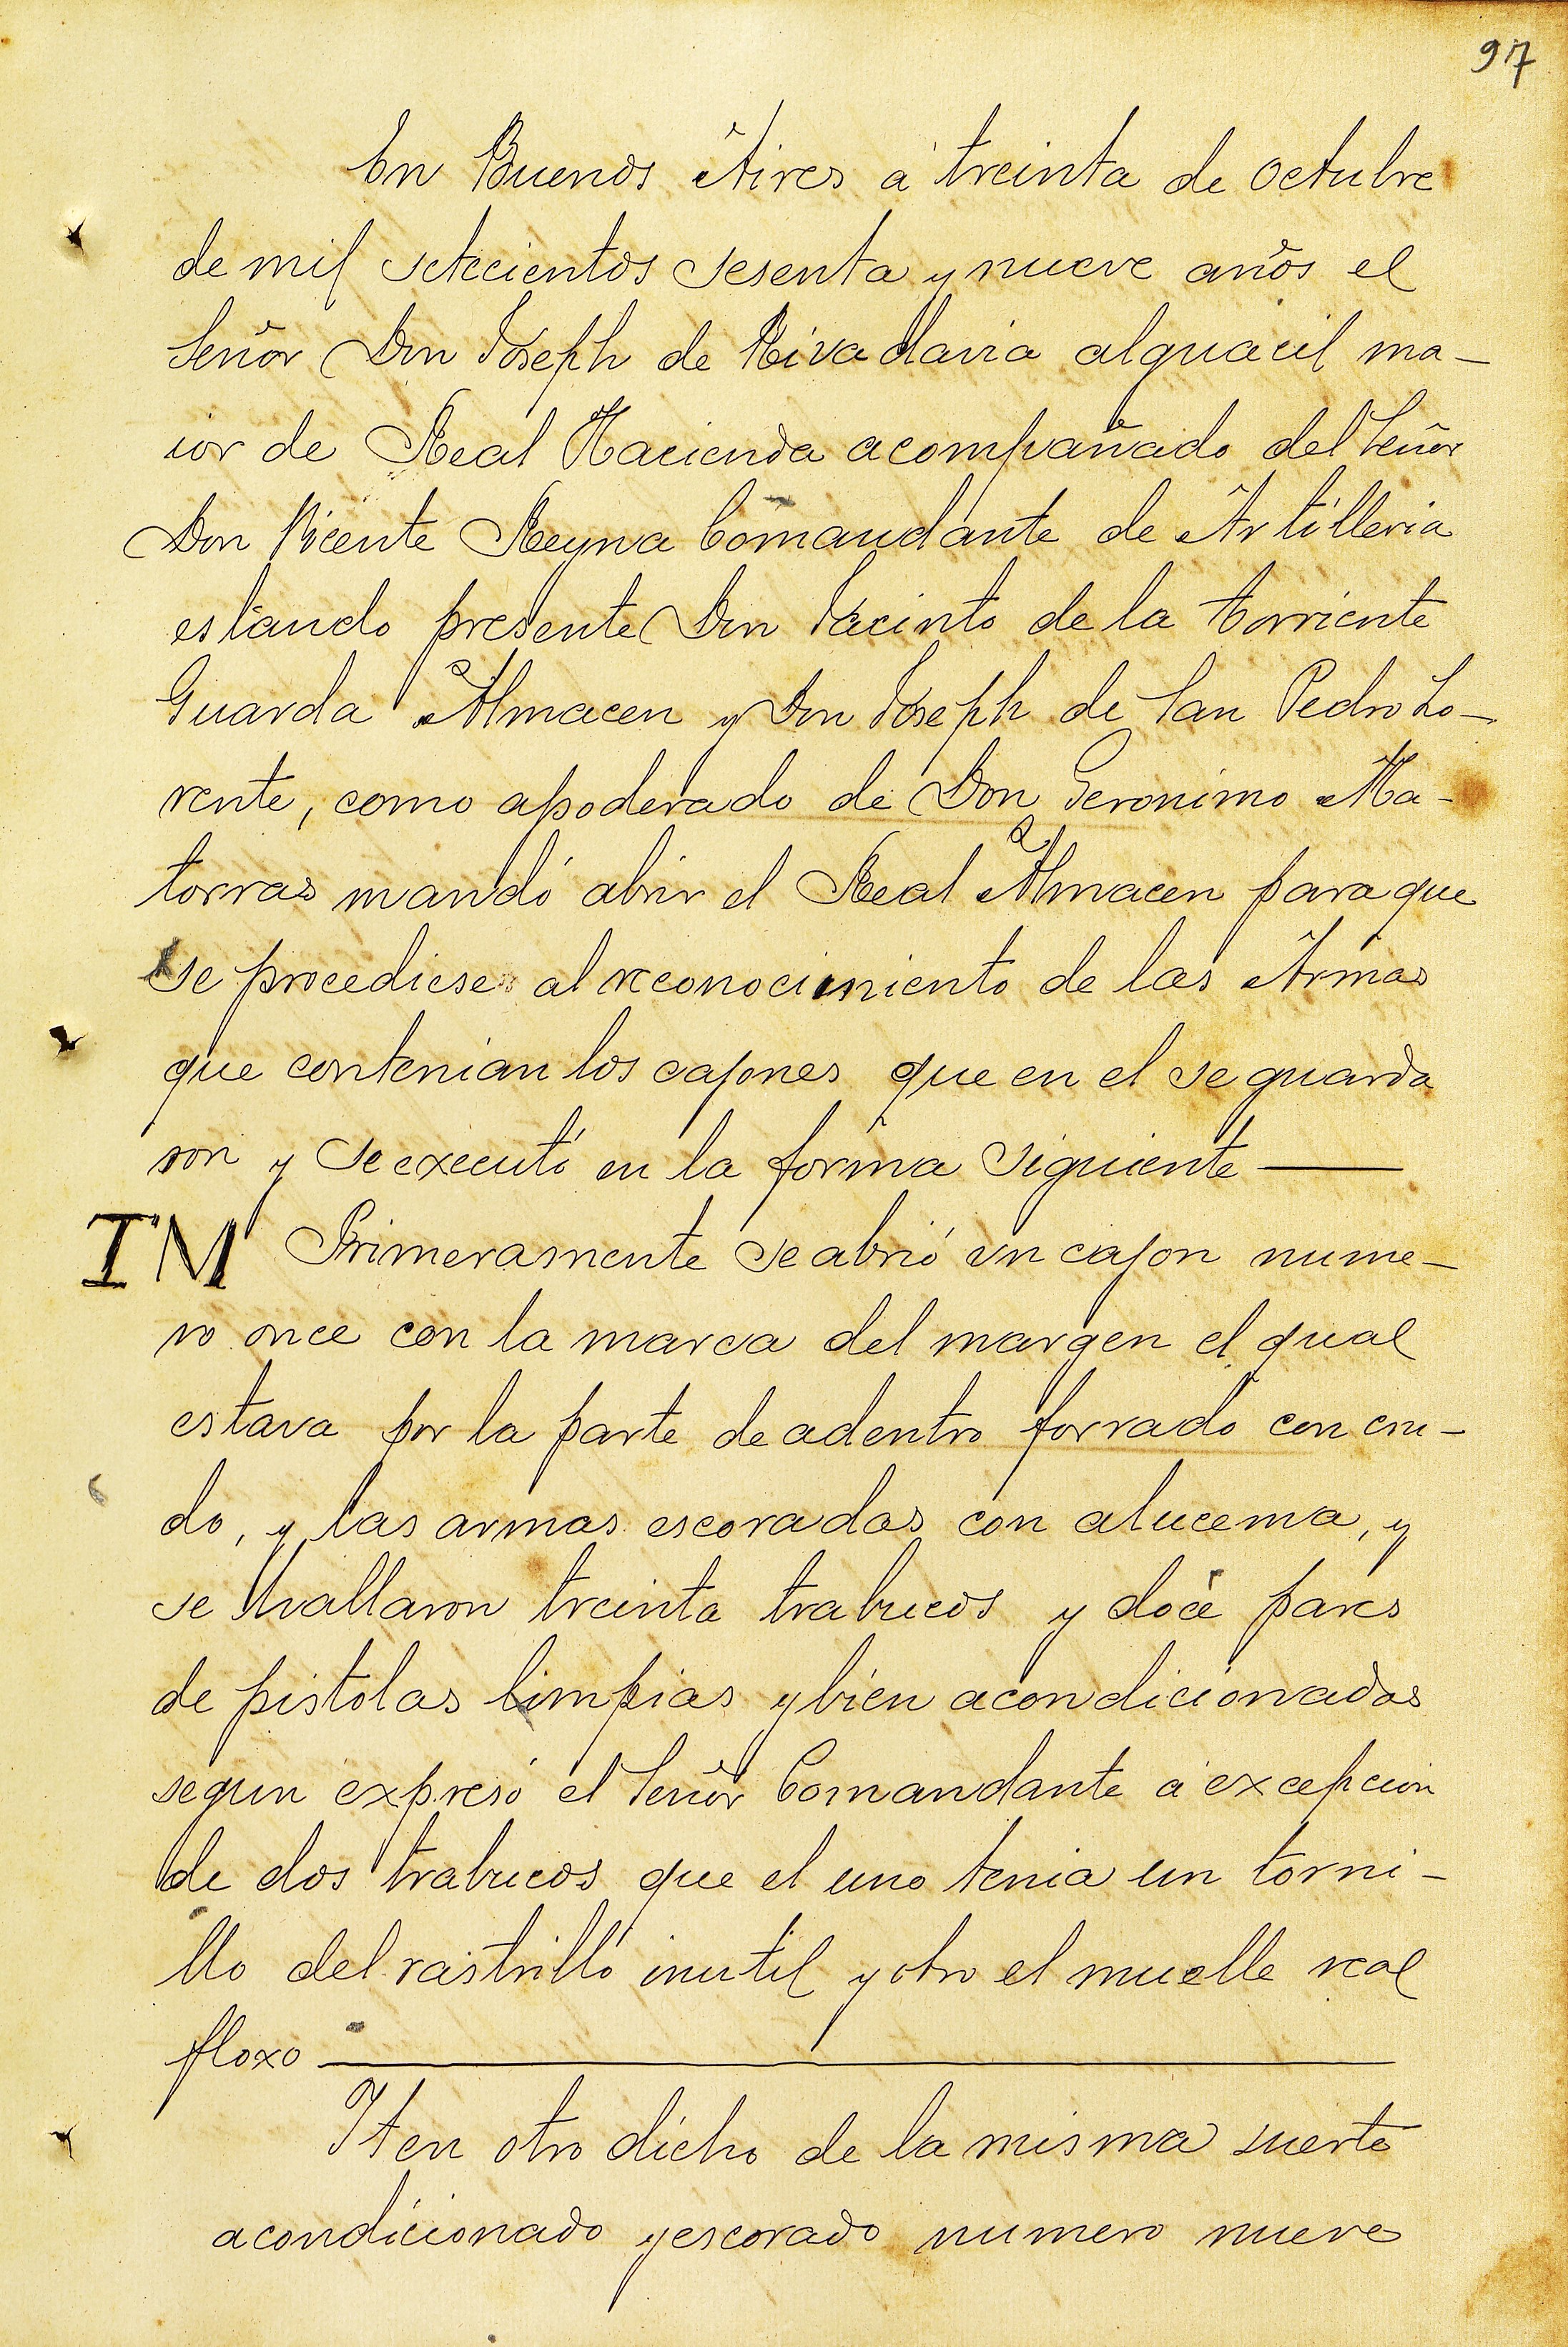 97
En Buenos Aires á treinta de octubre
de mil setecientos sesenta y nueve años el
Señor Don Joseph de Rivadavia alguacil ma-
ior de Real Hacienda acompañado del Señor
Don Vicente Reyna Comandante de Artilleria
estando presente Don Jacinto de la torriente
Guarda Almacen y Don Joseph de San Pedro Lo-
rente, como apoderado de Don Geronimo Ma-
torras mandó abrir el Real Almacen para que
se procediese al reconocimiento de las Armas
que contenian los cajones que en el se guarda
ron y se executó en la forma siguiente
IM Primeramente se abrió un cajon nume-
ro once con la marca del margen el qual
estava por la parte de adentro forrado con cru-
do, y las armas escoradas con alucema, y
se hallaron treinta trabucos y doce pares
de pistolas limpias y bien acondicionadas
segun expresó el Señor Comandante á excepcion
de dos trabucos que el uno tenia un torni-
llo del rastrilló inutil y otro el muelle real
floxo
Iten otro dicho de la misma suerte
acondicionado y escorado numero nueve